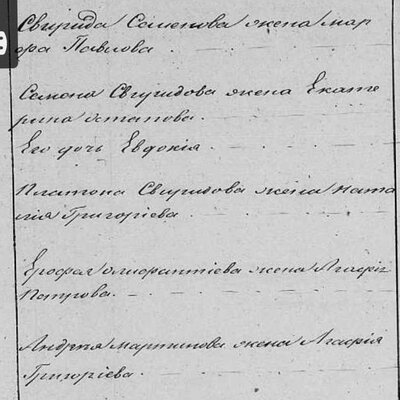 Свирида Семенова жена мар
фа Павлова.
Семена Свиридова жена Екате
рина Остапова.
Его дочь Евдокія.
Платона Свиридова жена ната
лія Григоріева
Ерофея олиферптіева жена Агафія
Петрова.
Андрея мартинова жена Агафія
Григоріева.